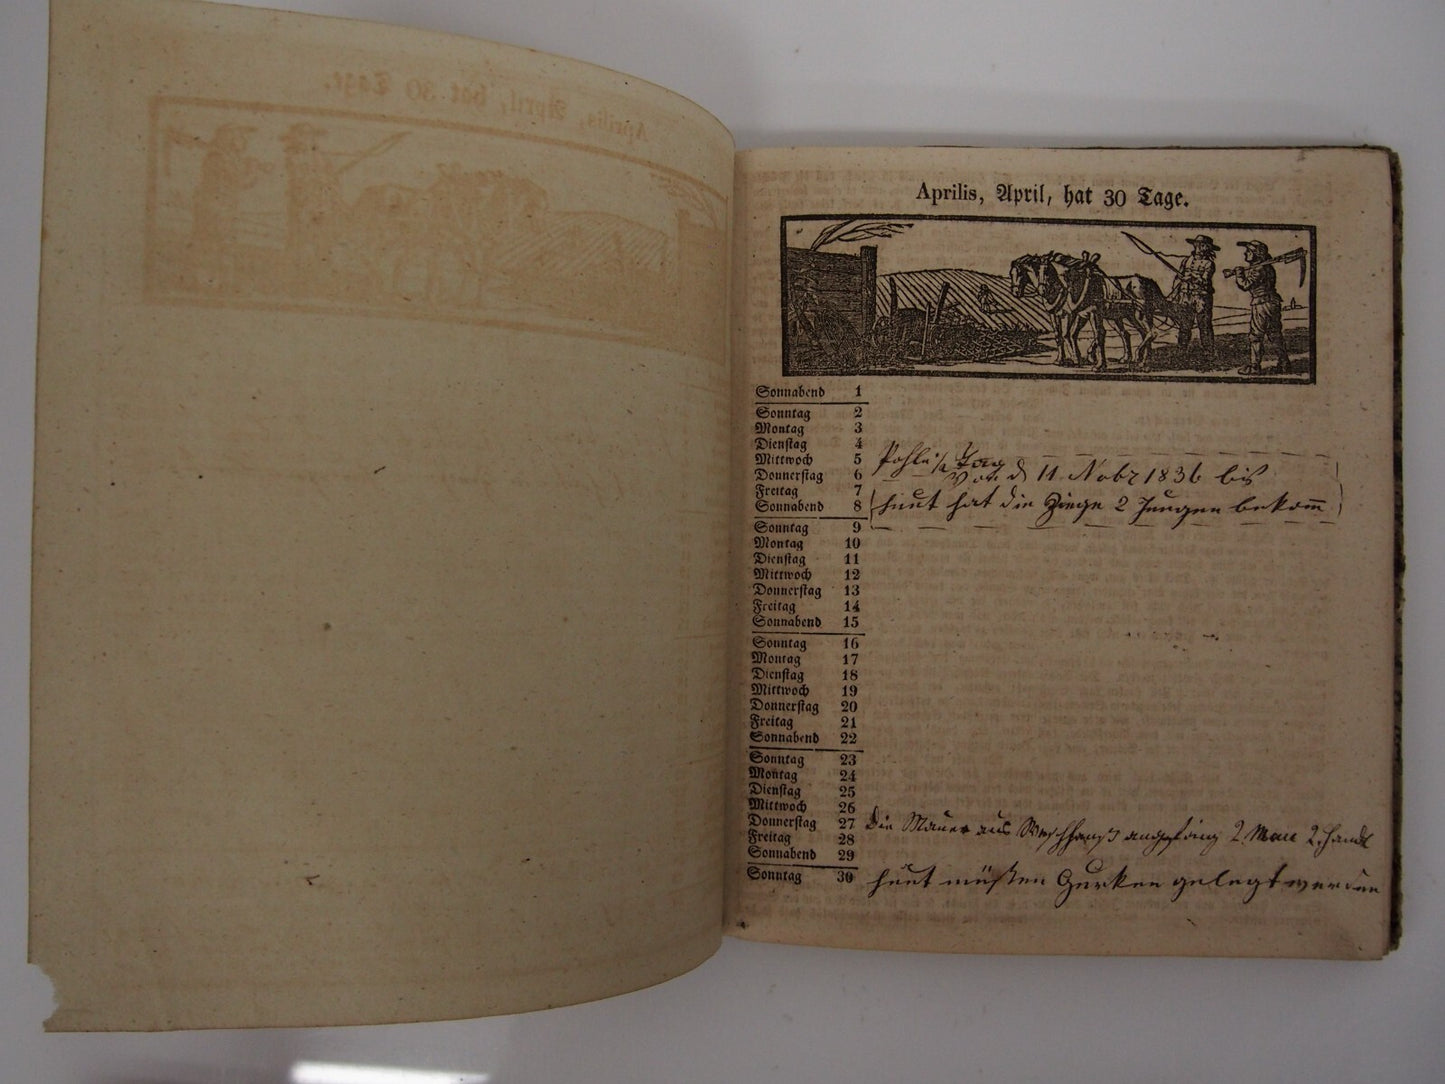 Aprilis, April, hat 30 Tage.
Sonnabend 1
Sonntag 2
Montag 3
Dienstag 4
Mittwoch 5
Donnerstag 6
Freitag 7
Sonnabend 8
Tag
von d 11 Nobr 1836 bis
heut hat die Ziege 2 Jungen bekom̅
Sonntag 9
Montag 10
Dienstag 11
Mittwoch 12
Donnerstag 13
Freitag 14
Sonnabend 15
Sonntag 16
Montag 17
Dienstag 18
Mittwoch 19
Donnerstag 20
Freitag 21
Sonnabend 22
Sonntag 23
Montag 24
Dienstag 25
Mittwoch 26
Donnerstag 27 die Mauer aus angefang 2 Mau 2 handl
Freitag 28
Sonnabend 29
Sonntag 30 heut müßen Gurken gelegt werden
Aprilis, April, hat 30 Tage.